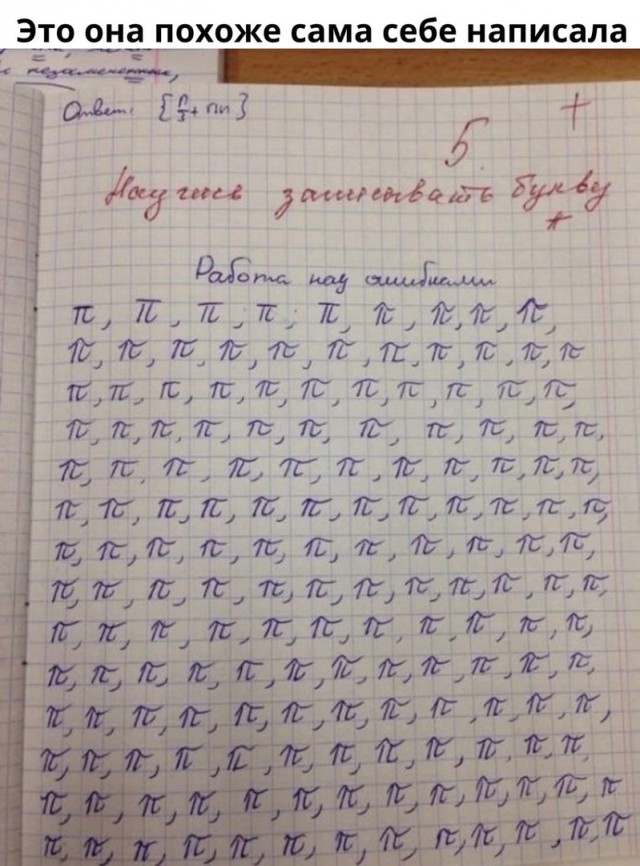 Это она похоже сама себе написала
Ответ: [π/3 + πn]
5 +
Научись записывать букву
π
Работа над ошибками
π, π, π, π, π, π, π, π, π,
π, π, π, π, π, π, π, π, π, π, π
π, π, π, π, π, π, π, π, π, π, π,
π, π, π, π, π, π, π, π, π, π, π,
π, π, π, π, π, π, π, π, π, π, π,
π, π, π, π, π, π, π, π, π, π, π, π,
π, π, π, π, π, π, π, π, π, π, π,
π, π, π, π, π, π, π, π, π, π, π, π,
π, π, π, π, π, π, π, π, π, π, π,
π, π, π, π, π, π, π, π, π, π, π, π,
π, π, π, π, π, π, π, π, π, π, π, π,
π, π, π, π, π, π, π, π, π, π, π, π,
π, π, π, π, π, π, π, π, π, π, π, π, π
π, π, π, π, π, π, π, π, π, π, π, π, π